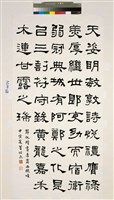 天姿明敏敦詩悅禮膺祿
美厚繼世郎吏幼而宿衛
弱冠典城有阿鄭之化是
以三剖符守致黃龍嘉禾
木連甘露之瑞